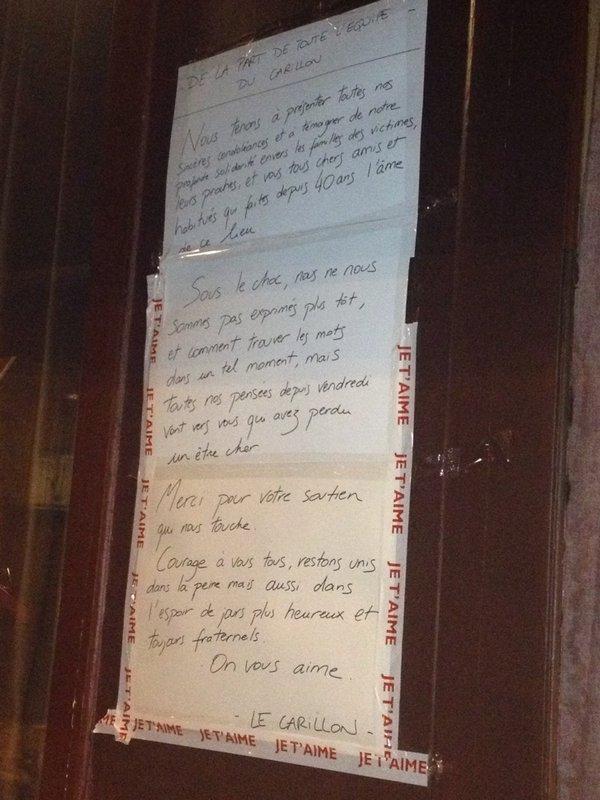 DE LA PART DE TOUTE L'EQUIPE
DU CARILLON
Nous tenons à présenter toutes nos
sincères condoléances et à témoigner de notre
profonde solidarité envers les familles des victimes,
leurs proches, et vous tous chers amis et
habitués qui faites depuis 40 ans l'âme
de ce lieu
Sous le choc, nous ne nous
sommes pas exprimés plus tôt,
et comment trouver les mots
dans un tel moment, mais
toutes nos pensées depuis vendredi
vont vers vous qui avez perdu
un être cher
Merci pour votre soutien
qui nous touche.
Courage à vous tous, restons unis
dans la peine mais aussi dans
l'espoir de jours plus heureux et
toujours fraternels.
On vous aime.
- LE CARILLON -
JE T'AIME
JE T'AIME
JE T'AIME
JE T'AIME
JE T'AIME
JE T'AIME
JE T'AIME
JE T'AIME
JE T'AIME
JE T'AIME JE T'AIME JE T'AIME JE T'AIME